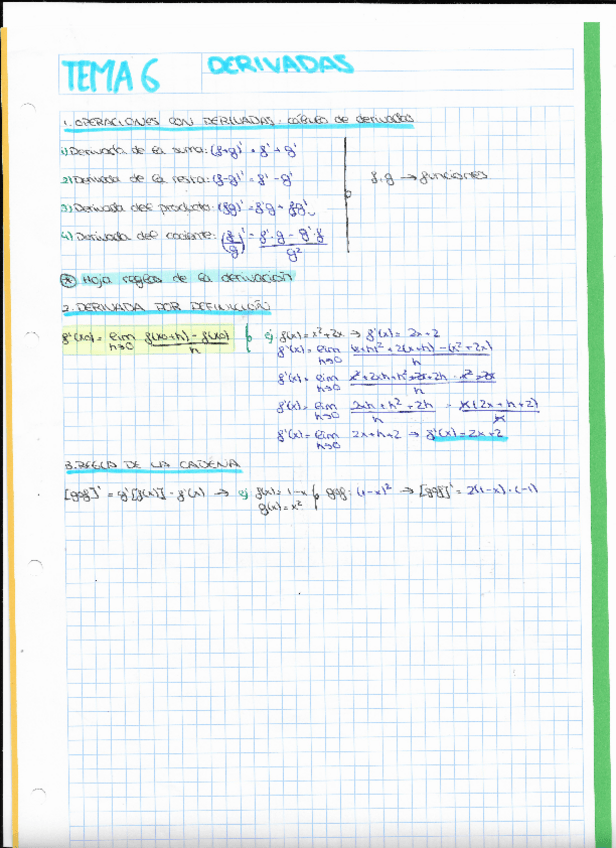 TEMA 6
DERIVADAS
1. OPERACIONES CON DERIVADAS: cálculo de derivadas
1) Derivada de la suma: (f+g)' = f' + g'
2) Derivada de la resta: (f-g)' = f' - g'
f, g → funciones
3) Derivada del producto: (fg)' = f'g + fg'
4) Derivada del cociente: (f/g)' = f'·g - g'·f / g²
* Hoja reglas de la derivación
2. DERIVADA POR DEFINICIÓN
f'(x0) = lim h→0 f(x0+h) - f(x0) / h
ej f(x) = x²+2x → f'(x) = 2x+2
f'(x) = lim h→0 (x+h)² + 2(x+h) - (x²+2x) / h
f'(x) = lim h→0 x²+2xh+h²+2x+2h - x² - 2x / h
f'(x) = lim h→0 2xh + h² + 2h / h = h(2x+h+2) / h
f'(x) = lim h→0 2x+h+2 → f'(x) = 2x+2
3. REGLA DE LA CADENA
[gof]' = g'[f(x)] · f'(x) → ej f(x) = 1-x gof = (1-x)² → [gof]' = 2(1-x)·(-1)
g(x) = x²